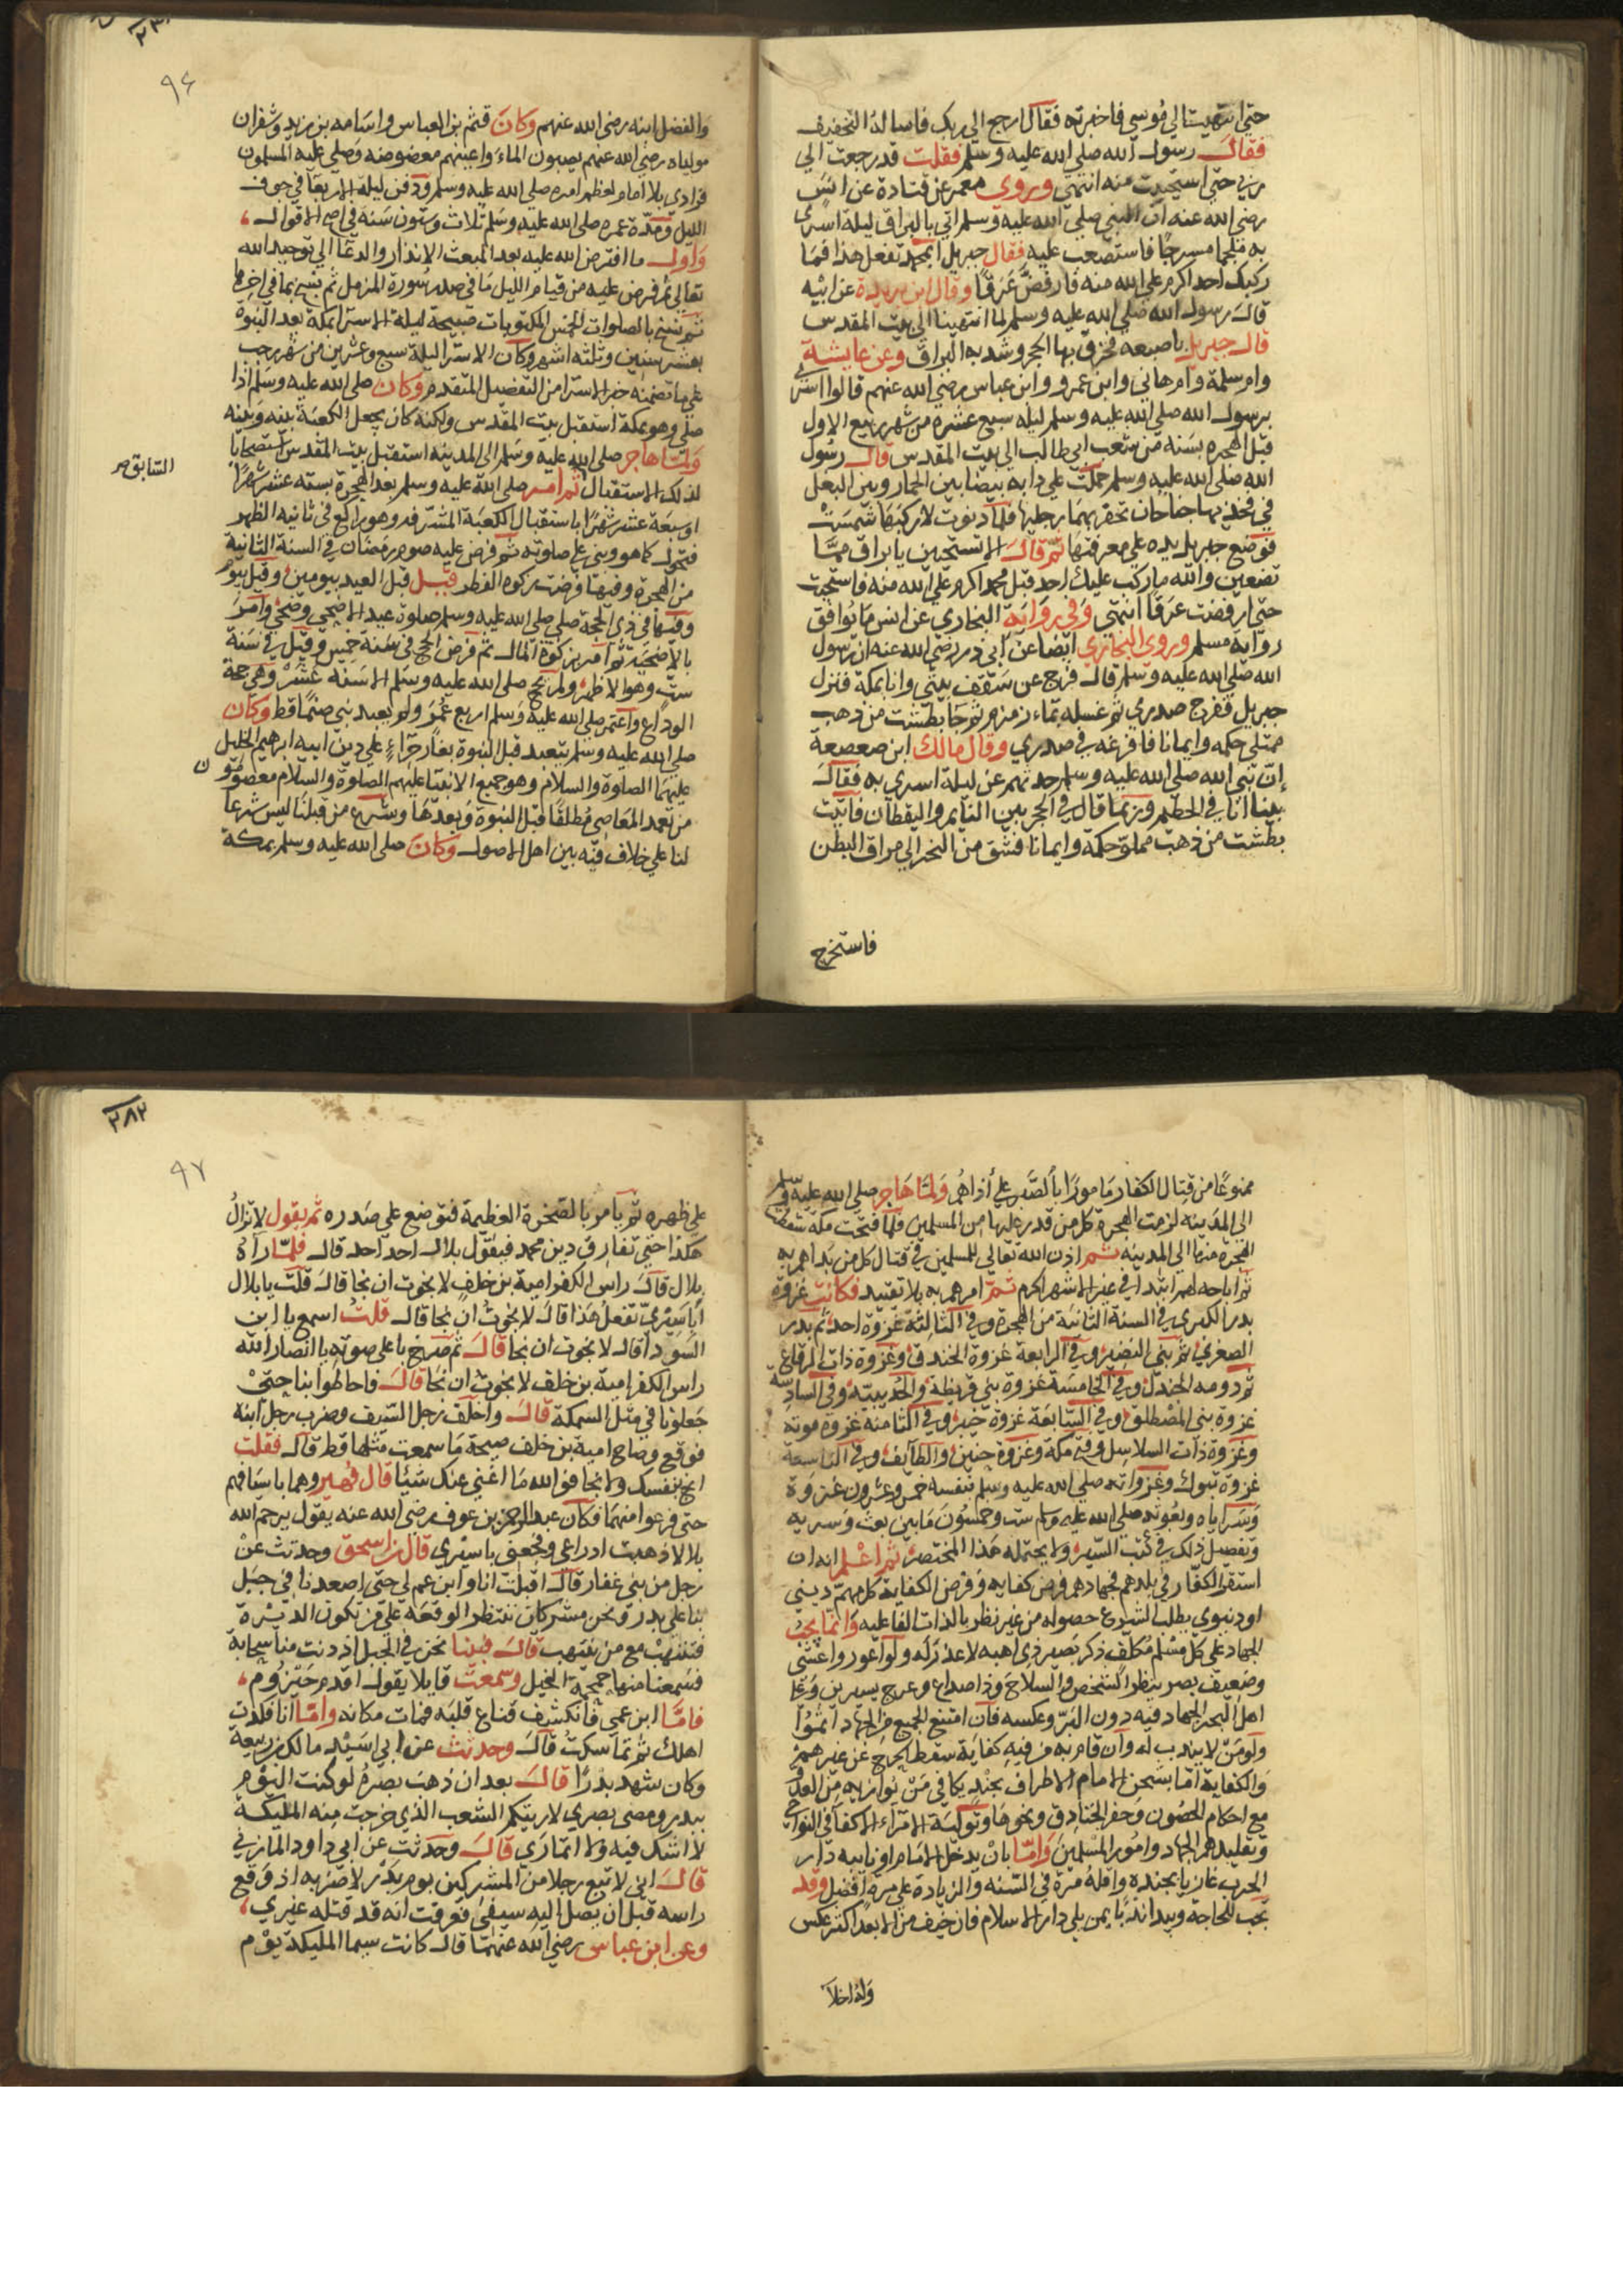 حتى انتهيت الى موسى فاخبرته فقال ارجع الى ربك فاساله التخفيف
فقال رسول الله صلى الله عليه وسلم فقلت قد رجعت الى
ربي حتى استحييت منه انتهى وروى معمر عن قتادة عن انس
رضى الله عنه ان النبي صلى الله عليه وسلم اتي بالبراق ليلة اسرى
به ملجما مسرجا فاستصعب عليه فقال جبريل ابمحمد تفعل هذا فما
ركبك احد اكرم على الله منه فارفض عرقا وقال ابن بريدة عن ابيه
قال رسول الله صلى الله عليه وسلم لما انتهينا الى بيت المقدس
قال جبريل باصبعه فخرق بها الحجر وشد به البراق وعن عايشة
وام سلمة وام هاني وابن عمرو وابن عباس رضى الله عنهم قالوا اسرى
برسول الله صلى الله عليه وسلم ليله سبع عشره من شهر ربيع الاول
قبل الهجره بسنه من شعب ابى طالب الى بيت المقدس قال رسول
الله صلى الله عليه وسلم حملت على دابه بيضا بين الحمار وبين البغل
في فخذيها جناحان تحفز بهما رجليها فلما دنوت لاركبها شمست
فوضع جبريل يده على معرفتها ثم قال الا تستحين يا براق مما
تصنعين والله ما ركب عليك احد قبل محمد اكرم على الله منه فاستحيت
حتى ارفضت عرقا انتهى وفي رواية البخاري عن انس ما يوافق
رواية مسلم وروى البخاري ايضا عن ابى ذر رضى الله عنه ان رسول
الله صلى الله عليه وسلم قال فرج عن سقف بيتي وانا بمكة فنزل
جبريل ففرج صدري ثم غسله بماء زمزم ثم جا بطشت من ذهب
ممتلى حكمه وايمانا فافرغه في صدري وقال مالك ابن صعصعة
ان نبي الله صلى الله عليه وسلم حدثهم عن ليلة اسري به فقال
بينا انا في الحطيم وربما قال في الحجر بين النايم واليقظان فاتيت
بطشت من ذهب مملو حكمة وايمانا فشق من النحر الى مراق البطن
فاستخرج
٩٤
والفضل ابنه رضى الله عنهم وكان قثم بن العباس واسامه بن زيد وشقران
مولياه رضى الله عنهم يصبون الماء واعينهم معصوبه وصلى عليه المسلمون
فرادى بلا امام لعظم امره صلى الله عليه وسلم ودفن ليلة الاربعا في جوف
الليل ومدة عمره صلى الله عليه وسلم ثلاث وستون سنة في اصح الاقوال
واول ما افترض الله عليه بعد المبعث الانذار والدعا الى توحيد الله
تعالى ثم فرض عليه من قيام الليل ما في صدر سورة المزمل ثم نسخ بما في اخرها
ثم نسخ بالصلوات الخمس المكتوبات صبيحة ليلة الاسرا بمكة بعد النبوة
بعشر سنين وثلثه اشهر وكان الاسرا ليلة سبع وعشرين من شهر رجب
على ما تضمنه خبر الاسرا من التفضيل المتقدم وكان صلى الله عليه وسلم اذا
صلى وهو بمكة استقبل بيت المقدس ولكنه كان يجعل الكعبة بينه وبينه
ولما هاجر صلى الله عليه وسلم الى المدينه استقبل بيت المقدس استصحابا
السابق صح
لذلك الاستقبال ثم امر صلى الله عليه وسلم بعد الهجرة بستة عشر شهرا
او سبعة عشر شهرا باستقبال الكعبة المشرفه وهو راكع في ثانيه الظهر
فتحول كما هو وبنى على صلوته ثم فرض عليه صوم رمضان في السنة الثانية
من الهجرة وفيها فرضت زكوة الفطر قبل قبل العيد بيومين وقيل بيوم
وفيها في ذى الحجة صلى صلى الله عليه وسلم صلوة عيد الاضحى وضحى وامر
بالاضحية ثم امر بزكوة المال ثم فرض الحج في سنة خمس وقيل في سنة
ست وهو الاظهر ولم يحج صلى الله عليه وسلم الا سنة عشر وهي حجة
الوداع واعتمر صلى الله عليه وسلم اربع عمر ولم يعبد نبي صنما قط وكان
صلى الله عليه وسلم يتعبد قبل النبوة بغار حراء على دين ابيه ابرهيم الخليل
عليهما الصلوة والسلام وهو جميع الانبيا عليهم الصلوة والسلام معصومون
من تعمد المعاصى مطلقا قبل النبوة وبعدها وشرع من قبلنا ليس شرعا
لنا على خلاف فيه بين اهل الاصول وكان صلى الله عليه وسلم بمكة
ممنوعا من قتال الكفار مامورا بالصبر على أذاهم ولما هاجر صلى الله عليه وسلم
الى المدينه لزمت الهجرة كل من قدر عليها من المسلمين فلما فتحت مكة سقطت
الهجرة منها الى المدينه ثم اذن الله تعالى للمسلمين في قتال كل من بداهم به
ثم اباحه لهم ابتدا في غير الاشهر الحرم ثم امرهم به بلا تقييد فكانت غزوة
بدر الكبرى في السنة الثانية من الهجرة وفي الثالثة غزوة احد ثم بدر
الصغرى ثم بني النضير وفي الرابعة غزوة الخندق وغزوة ذات الرقاع
ثم دومه الجندل وفي الخامسة غزوة بني قريظة والحديبيه وفي السادسه
غزوة بني المصطلق وفي السابعة غزوة خيبر وفي الثامنه غزوة موته
وغزوة ذات السلاسل وفتح مكة وغزوة حنين والطايف وفي التاسعة
غزوة تبوك وغزواته صلى الله عليه وسلم بنفسه خمس وعشرون غزوة
وسراياه وبعوثه صلى الله عليه وسلم ست وخمسون ما بين بعث وسريه
وتفصيل ذلك في كتب السير ولا يحتمله هذا المختصر ثم اعلم انه ان
استقر الكفار في بلدهم فجهادهم فرض كفايه وفرض الكفاية كل مهم ديني
او دنيوي يطلب الشرع حصوله من غير نظر بالذات الفاعليه وانما يجب
الجهاد على كل مسلم مكلف ذكر بصير ذي اهبه لا عذر له ولو اعور واعشى
وضعيف بصر ينظر الشخص والسلاح وذا صداع وعرج يسيرين وعلى
اهل البحر الجهاد فيه دون البر وعكسه فان امتنع الجميع من الجهاد اثموا
ولو من لا يندب له وان قام به من فيه كفاية سقط الحرج عن غيرهم
والكفاية اما بشحن الامام الاطراف بجند يكافي من يوازيه من العدو
مع احكام الحصون وحفر الخنادق ونحوها وتولية الامراء الاكفا في النواحي
وتقليدهم الجهاد وامور المسلمين واما بان يدخل الامام او نايبه دار
الحرب غازيا بجنده واقله مرة في السنه والزيادة على مره افضل وقد
تجب للحاجة ويبدا ندبا بمن يلي دار الاسلام فان خيف من الابعد اكثر عكس
٢٨٢
٩٧
على ظهره ثم يامر بالصخرة العظيمة فتوضع على صدره ثم يقول لا تزال
هكذا حتى تفارق دين محمد فيقول بلال احد احد قال فلما رآه
بلال قال راس الكفر امية بن خلف لا نجوت ان نجا قال قلت يا بلال
أبأسيرى تفعل هذا قال لا نجوت ان نجا قال قلت اسمع يا ابن
السودا قال لا نجوت ان نجا قال ثم صرخ باعلى صوته يا انصار الله
راس الكفر امية بن خلف لا نجوت ان نجا قال فاحاطوا بنا حتى
جعلونا في مثل السمكة قال واخلف رجل السيف وضرب رجل ابنه
فوقع وصاح امية بن خلف صيحة ما سمعت مثلها قط قال فقلت
انج بنفسك ولا نجا فو الله ما اغنى عنك شيئا قال فهبروهما باسيافهم
حتى فرغوا منهما فكان عبد الرحمن بن عوف رضى الله عنه يقول يرحم الله
بلالا ذهبت ادراعى وفجعنى باسيرى قال بن اسحق وحدثت عن
رجل من بني غفار قال اقبلت انا وابن عم لي حتى اصعدنا في جبل
بنا على بدر ونحن مشركان ننتظر الوقعة على من يكون الديرة
فننتهب مع من ينتهب قال فبينا نحن في الجبل اذ دنت منا سحابة
فسمعنا منها حمحمة الخيل وسمعت قايلا يقول اقدم حيزوم
فاما ابن عمي فانكشف قناع قلبه فمات مكانه واما انا فكدت
اهلك ثم تماسكت قال وحدثت عن أبي اسيد مالك بن ربيعة
وكان شهد بدرا قال بعد ان ذهب بصره لو كنت اليوم
ببدر ومعى بصري لاريتكم الشعب الذي خرجت منه المليكة
لا اشك فيه ولا اتمارى قال وحدثت عن ابي داود المازني
قال انى لا تبع رجلا من المشركين يوم بدر لاضربه اذ وقع
راسه قبل ان يصل اليه سيفى فعرفت انه قد قتله غيري
وعن ابن عباس رضى الله عنهما قال كانت سيما المليكة يوم